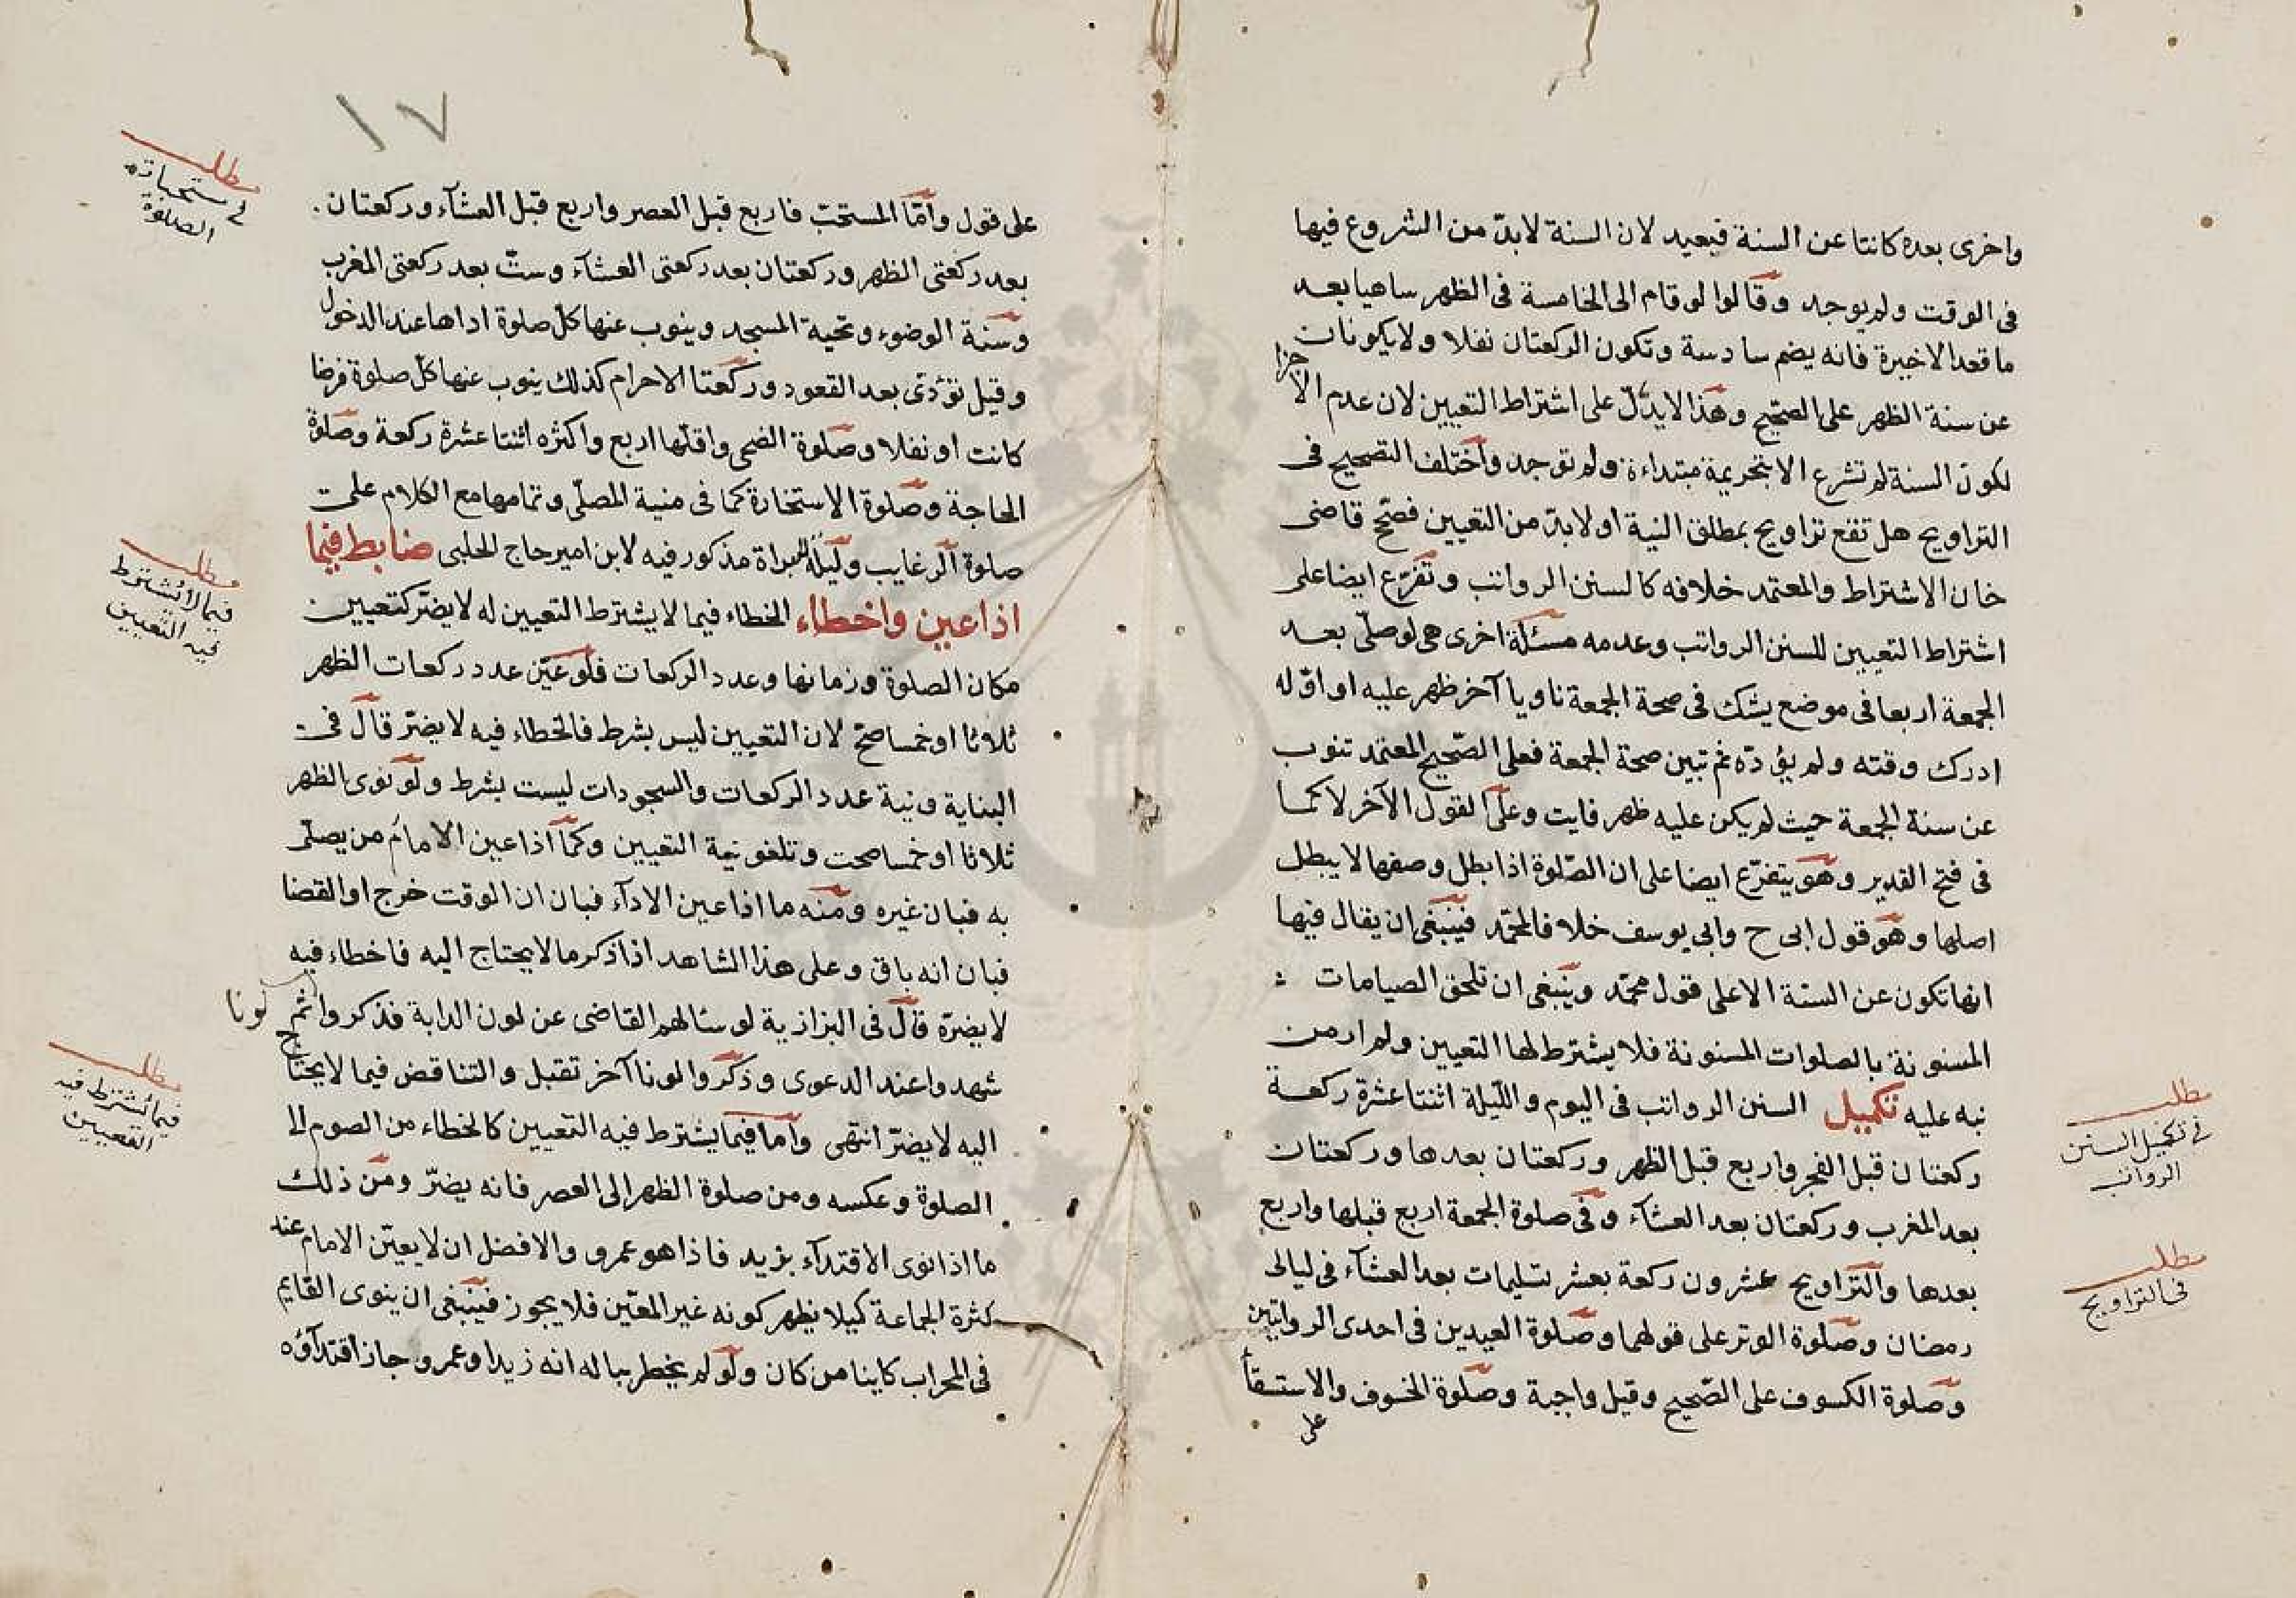 واخرى بعده كانتا عن السنة فيعيد لان السنة لابدّ من الشروع فيها
فى الوقت ولم يوجد وقالوا لو قام الى الخامسة فى الظهر ساهيا بعد
ما قعد الاخيرة فانه يضم سادسة وتكون الركعتان نفلا ولايكونان
عن سنة الظهر على الصحيح وهذا لايدلّ على اشتراط التعيين لان عدم الاجزا
لكون السنة لم تشرع الا بتحريمة مبتداءة ولم توجد واختلف التصحيح فى
التراويح هل تقع تراويح بمطلق النية او لابدّ من التعيين فصحّح قاضى
خان الاشتراط والمعتمد خلافه كالسنن الرواتب وتفرّع ايضا على
اشتراط التعيين للسنن الرواتب وعدمه مسئلة اخرى هى لو صلّى بعد
الجمعة اربعا فى موضع يشك فى صحة الجمعة ناويا آخر ظهر عليه او اوّله
ادرك وقته ولم يؤدّه ثم تبين صحة الجمعة فعلى الصّحيح المعتمد تنوب
عن سنة الجمعة حيث لم يكن عليه ظهر فايت وعلى القول الآخر لا كما
فى فتح القدير وهو يتفرّع ايضا على ان الصّلوة اذا بطل وصفها لايبطل
اصلها وهو قول ابى ح وابى يوسف خلافا لمحمّد فينبغى ان يقال فيها
انها تكون عن السنة الا على قول محمّد وينبغى ان تلحق الصيامات
المسنونة بالصلوات المسنونة فلا يشترط لها التعيين ولم ار من
نبه عليه تكميل السنن الرواتب فى اليوم والليلة اثنتا عشرة ركعة
ركعتان قبل الفجر واربع قبل الظهر وركعتان بعدها وركعتان
بعد المغرب وركعتان بعد العشآء وفى صلوة الجمعة اربع قبلها واربع
بعدها والتراويح عشرون ركعة بعشر تسليمات بعد العشآء فى ليالى
رمضان وصلوة الوتر على قولهما وصلوة العيدين فى احدى الروايتين
وصلوة الكسوف على الصّحيح وقيل واجبة وصلوة الخسوف والاستسقأ
على
مطلب
فى تكميل السنن
الرواتب
مطلب
فى التراويح
١٧
على قول وامّا المستحبّ فاربع قبل العصر واربع قبل العشآء وركعتان
بعد ركعتى الظهر وركعتان بعد ركعتى العشآء وستّ بعد ركعتى المغرب
وسنة الوضوء وتحية المسجد وينوب عنها كلّ صلوة اداها عند الدخول
وقيل تؤدّى بعد القعود وركعتا الاحرام كذلك ينوب عنها كلّ صلوة فرضا
كانت او نفلا وصلوة الضحى واقلّها اربع واكثره اثنتا عشرة ركعة وصلوة
الحاجة وصلوة الاستخارة كما فى منية المصلّى وتمامها مع الكلام على
صلوة الرغايب وليلة البراة مذكور فيه لابن امير حاج الحلبى ضابط فيما
اذا عين واخطاء الخطاء فيما لايشترط التعيين له لايضرّ كتعيين
مكان الصلوة وزمانها وعدد الركعات فلو عيّن عدد ركعات الظهر
ثلاثا او خمسا صحّ لان التعيين ليس بشرط فالخطاء فيه لايضرّ قال فى
البناية ونية عدد الركعات والسجودات ليست بشرط ولو نوى الظهر
ثلاثا او خمسا صحت وتلغو نية التعيين وكما اذا عين الامام من يصلّى
به فبان غيره ومنه ما اذا عين الادآء فبان ان الوقت خرج او القضا
فبان انه باق وعلى هذا الشاهد اذا ذكر ما لايحتاج اليه فاخطاء فيه
لايضرّه قال فى البزازية لو سئالهم القاضى عن لون الدابة فذكروا لونا ثم
شهدوا عند الدعوى وذكروا لونا آخر تقبل والتناقض فيما لايحتاج
اليه لايضرّ انتهى وامّا فيما يشترط فيه التعيين كالخطاء من الصوم الى
الصلوة وعكسه ومن صلوة الظهر الى العصر فانه يضرّ ومن ذلك
ما اذا نوى الاقتدآء بزيد فاذا هو عمرو والافضل ان لايعيّن الامام عند
كثرة الجماعة كيلا يظهر كونه غير المعيّن فلا يجوز فينبغى ان ينوى القايم
فى المحراب كاينا من كان ولو لم يخطر بباله انه زيد او عمرو جاز اقتدآؤه
مطلب
فى مستحباة
الصلوة
مطلب
فيما لا يشترط
فيه التعيين
مطلب
فيما يشترط فيه
التعيين